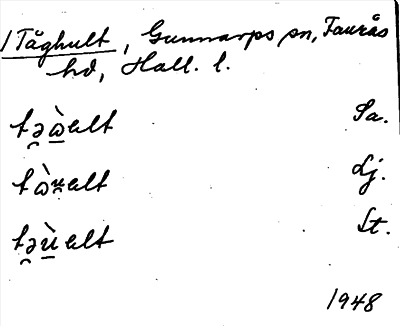 /Tåghult, Gunnarps sn, Faurås
hd, Hall. l.
tə̯ὼ̲ɐlt Sa.
tὼu̯ɐlt Lj.
tə̯ù̲ɐlt St.
1948